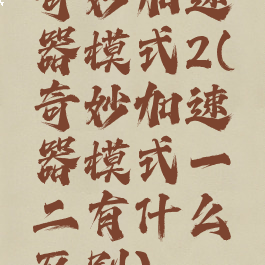 奇妙加速
器模式2(
奇妙加速
器模式一
二有什么
区别)